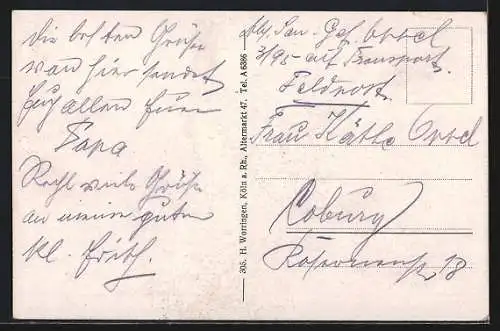 Die besten Grüße
von hier sendet
Euch allen Euer
Papa
Recht viele Grüße
an meine guten
kl. Erich.
305. H. Worringen, Köln a. Rh., Altermarkt 47. Tel. A 6386
Abs. San. Gef. Oppel
3/95 auf Transport.
Feldpost.
Frau Käthe Oppel
Coburg
18